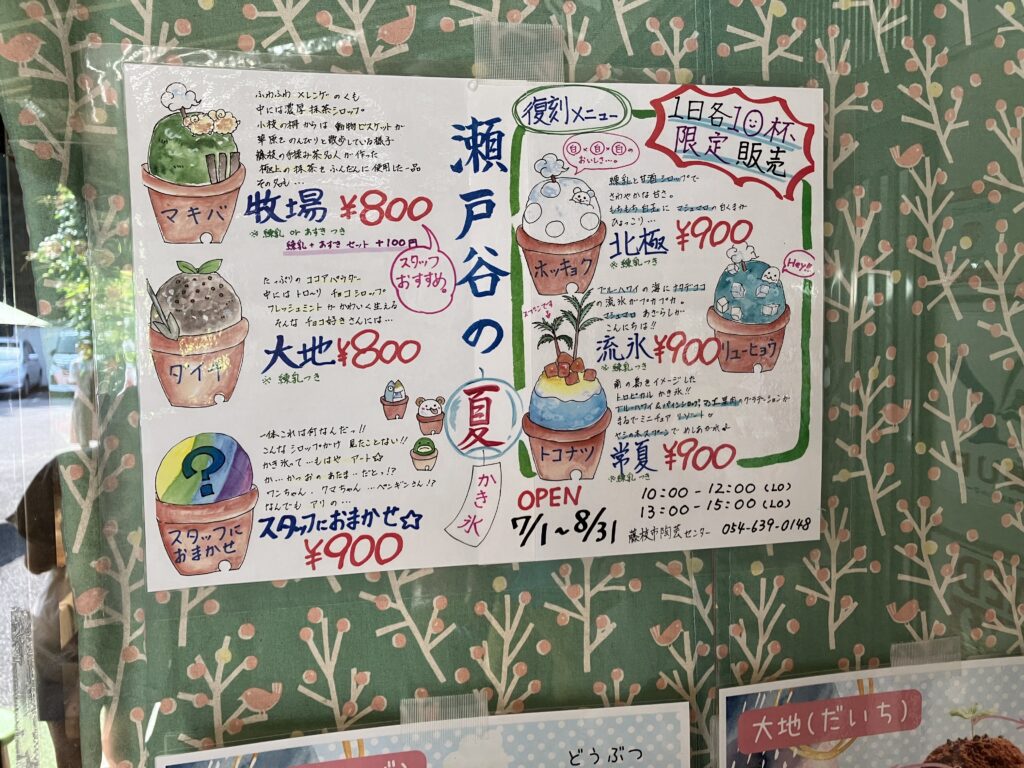 ふわふわ メレンゲ の くも
中には 濃厚 抹茶シロップ。
小枝の柵 からは 動物ビスケットが
草原を のんびりと 散歩している様子
藤枝の手摘み茶名人が作った
極上の抹茶をふんだんに使用した一品。
その名も…
マキバ
牧場 ¥800
※ 練乳 or あずき つき
練乳+あずき セット +100円
スタッフ
おすすめ。
たっぷりの ココアパウダー
中には トローリ チョコシロップ
フレッシュミントが かわいく 生える
そんな チョコ好き さんには…
ダイチ
大地 ¥800
※ 練乳つき
一体これは何なんだっ!!
こんな シロップかけ 見たことない!!
かき氷って…もはや アート☆
か…かっぱの あたま…だとっ!?
ワンちゃん、クマちゃん …ペンギンさん!?
なんでも アリの…
?
スタッフに
おまかせ
スタッフにおまかせ☆
¥900
瀬戸谷の
夏
かき氷
復刻メニュー
1日各10杯
限定 販売
白×白×白の
おいしさ…。
練乳と甘酒シロップで
さわやかな甘さ。
もちもち白玉に マシュマロの白くまが
ひょっこり…
ホッキョク
北極 ¥900
※ 練乳つき
Hey!!
ブルーハワイの海にナタデココ
の流氷がプカプカ。
マシュマロ あざらしが
こんにちは!!
リューヒョウ
流氷 ¥900
※ 練乳つき
スプーンです
南の島をイメージした
トロピカル かき氷!!
ブルーハワイ&パインシロップ、マンゴー果肉のグラデーションが
まるでミニチュア リゾート。
ヤシの木スプーンで めしあがれ♪
トコナツ
常夏 ¥900
※ 練乳つき
OPEN
7/1~8/31
10:00-12:00(LO)
13:00-15:00(LO)
藤枝市陶芸センター 054-639-0148
どうぶつ
大地(だいち)